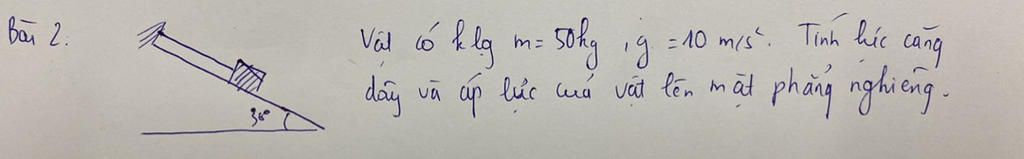 Bài 2.
Vật có k lg m = 50kg, g = 10 m/s². Tính lực căng
dây và áp lực của vật lên mặt phẳng nghiêng.
30°